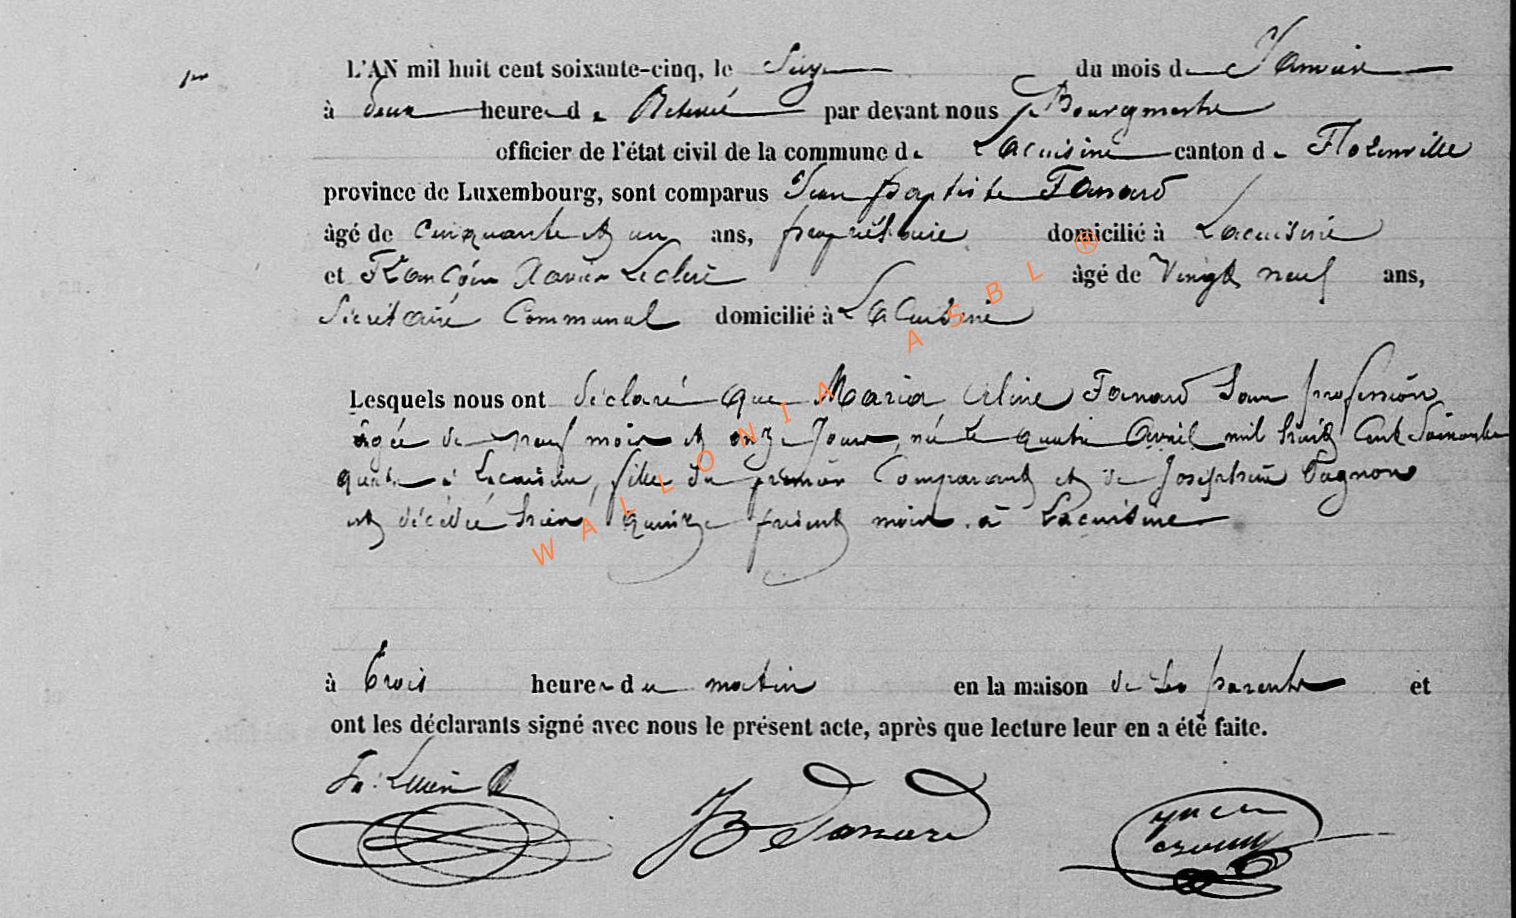 1er
L'AN mil huit cent soixante-cinq, le Seize du mois de Janvier
à deux heures de Relevée par devant nous Bourgmestre
officier de l'état civil de la commune de Lacuisine canton de Florenville
province de Luxembourg, sont comparus Jean Baptiste Fanard
âgé de Cinquante et un ans, propriétaire domicilié à Lacuisine
et François Xavier Leclere âgé de Vingt neuf ans,
Secrétaire Communal domicilié à Lacuisine
Lesquels nous ont déclaré que Maria Celine Fanard Sans profession
agée de neuf mois et onze Jours, née le quatre Avril mil huit Cent Soixante
quatre à Lacuisine, fille du premier Comparant et de Joséphine Pagnon
et décédée hier quinze présent mois à Lacuisine
à trois heures du matin en la maison de ses parents et
ont les déclarants signé avec nous le présent acte, après que lecture leur en a été faite.
JB Fanard
WALLONIA ASBL ®